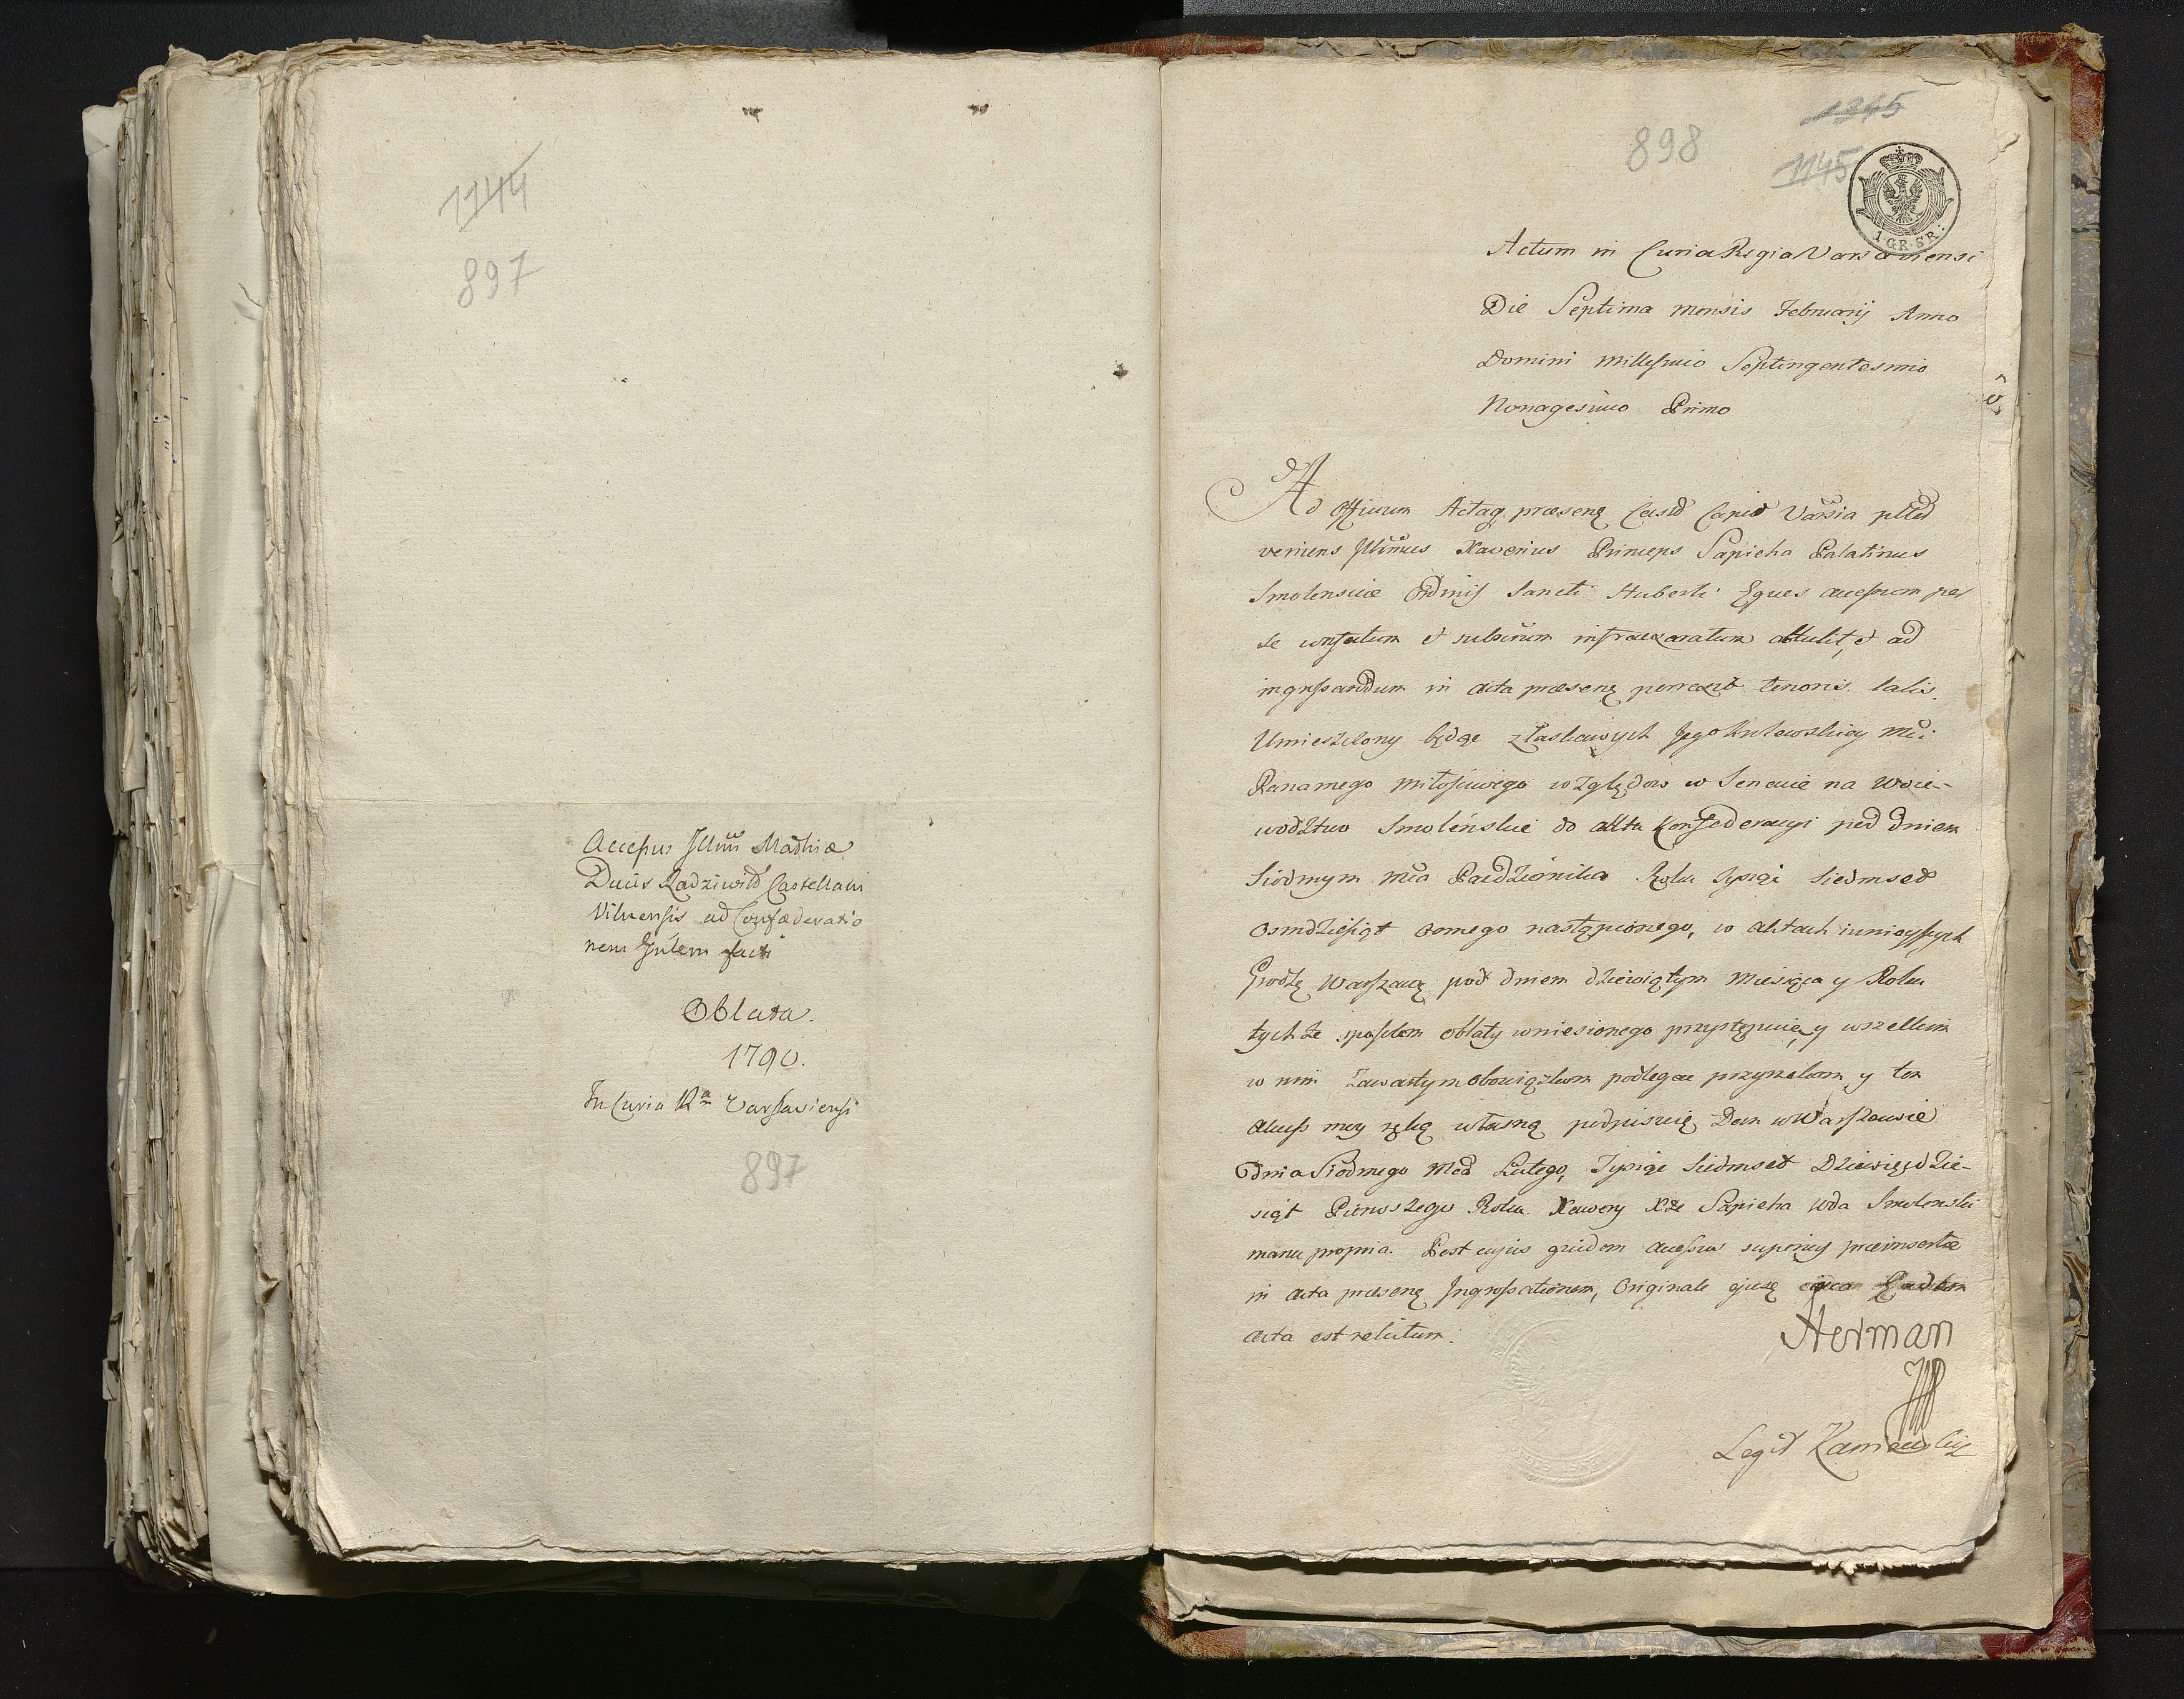 1144
897
Accessus Illmi Mathiæ
Ducis Radziwiłł Castellani
Vilnensis ad Confæderatio
nem Gnlem facti
Oblata.
1790.
In Curia Ra Varsaviensi
897
1345
898
1145
1 GR. SR:
Actum in Curia Regia Varsaviensi
Die Septima mensis Februarij Anno
Domini Millesimo Septingentesimo
Nonagesimo Primo
Ad Officium Actaq præsenę Castr Capit Varsia pltter
veniens Illmus Xaverius Princeps Sapieha Palatinus
Smolensciæ Ordinis Sancti Huberti Eques accessum per
se confectum et subscrum infraexaratum obtulit, et ad
ingrossandum in acta præsenę porrexit tenoris talis.
Umieszczony będąc z łaskawych Jego Krolewskiey Mci
Pana mego miłościwego względow w Senacie na Woie-
wodztwo Smoleńskie do Aktu Konfederacyi pod dniem
Siodmym mca Pazdziernika Roku Tysiąc siedmset
osmdziesiąt osmego nastąpionego, w Aktach inieyszych
Grodzę Warszawę pod dniem dziewiątym miesiąca y Roku
tychże sposobem oblaty wniesionego przystępuię, y wszelkim
w nim zawartym obowiązkom podlegać przyrzekam y ten
akcess moy ręką własną podpisuię Dan w Warszawie
dnia Siodmego Mca Lutego, Tysiąc Siedmset Dziewięćdzie-
siąt Pierwszego Roku. Xawery Xże Sapieha Wda Smolenski
manu propria. Post cujus quidem accessus superius præinsertæ
in acta præsenę Ingrossationem, Originale ejusę circa Eadem
acta est relictum.
Herman
Legit Kamiewski